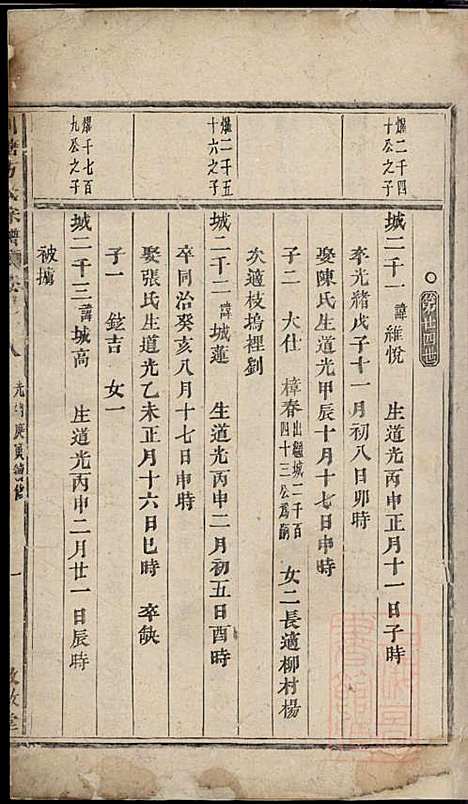 爆二千四
十公之子
城二千一 諱維悅 生道光丙申正月十一日子時
卒光緒戊子十一月初八日卯時
娶陳氏生道光甲辰十月十七日申時
子二 大仕 樟春 出繼城二千百四十三公為嗣 女二長適柳村楊
次適枝塢裡劉
爆二千五
十六之子
城二千二 諱城蓮 生道光丙申二月初五日酉時
卒同治癸亥八月十七日申時
娶張氏生道光乙未正月十六日巳時 卒缺
子一 鋐吉 女一
爆千七百
九公之子
城二千三 諱城高 生道光丙申二月廿一日辰時
被擄
光緒庚寅續修
一
敘堂